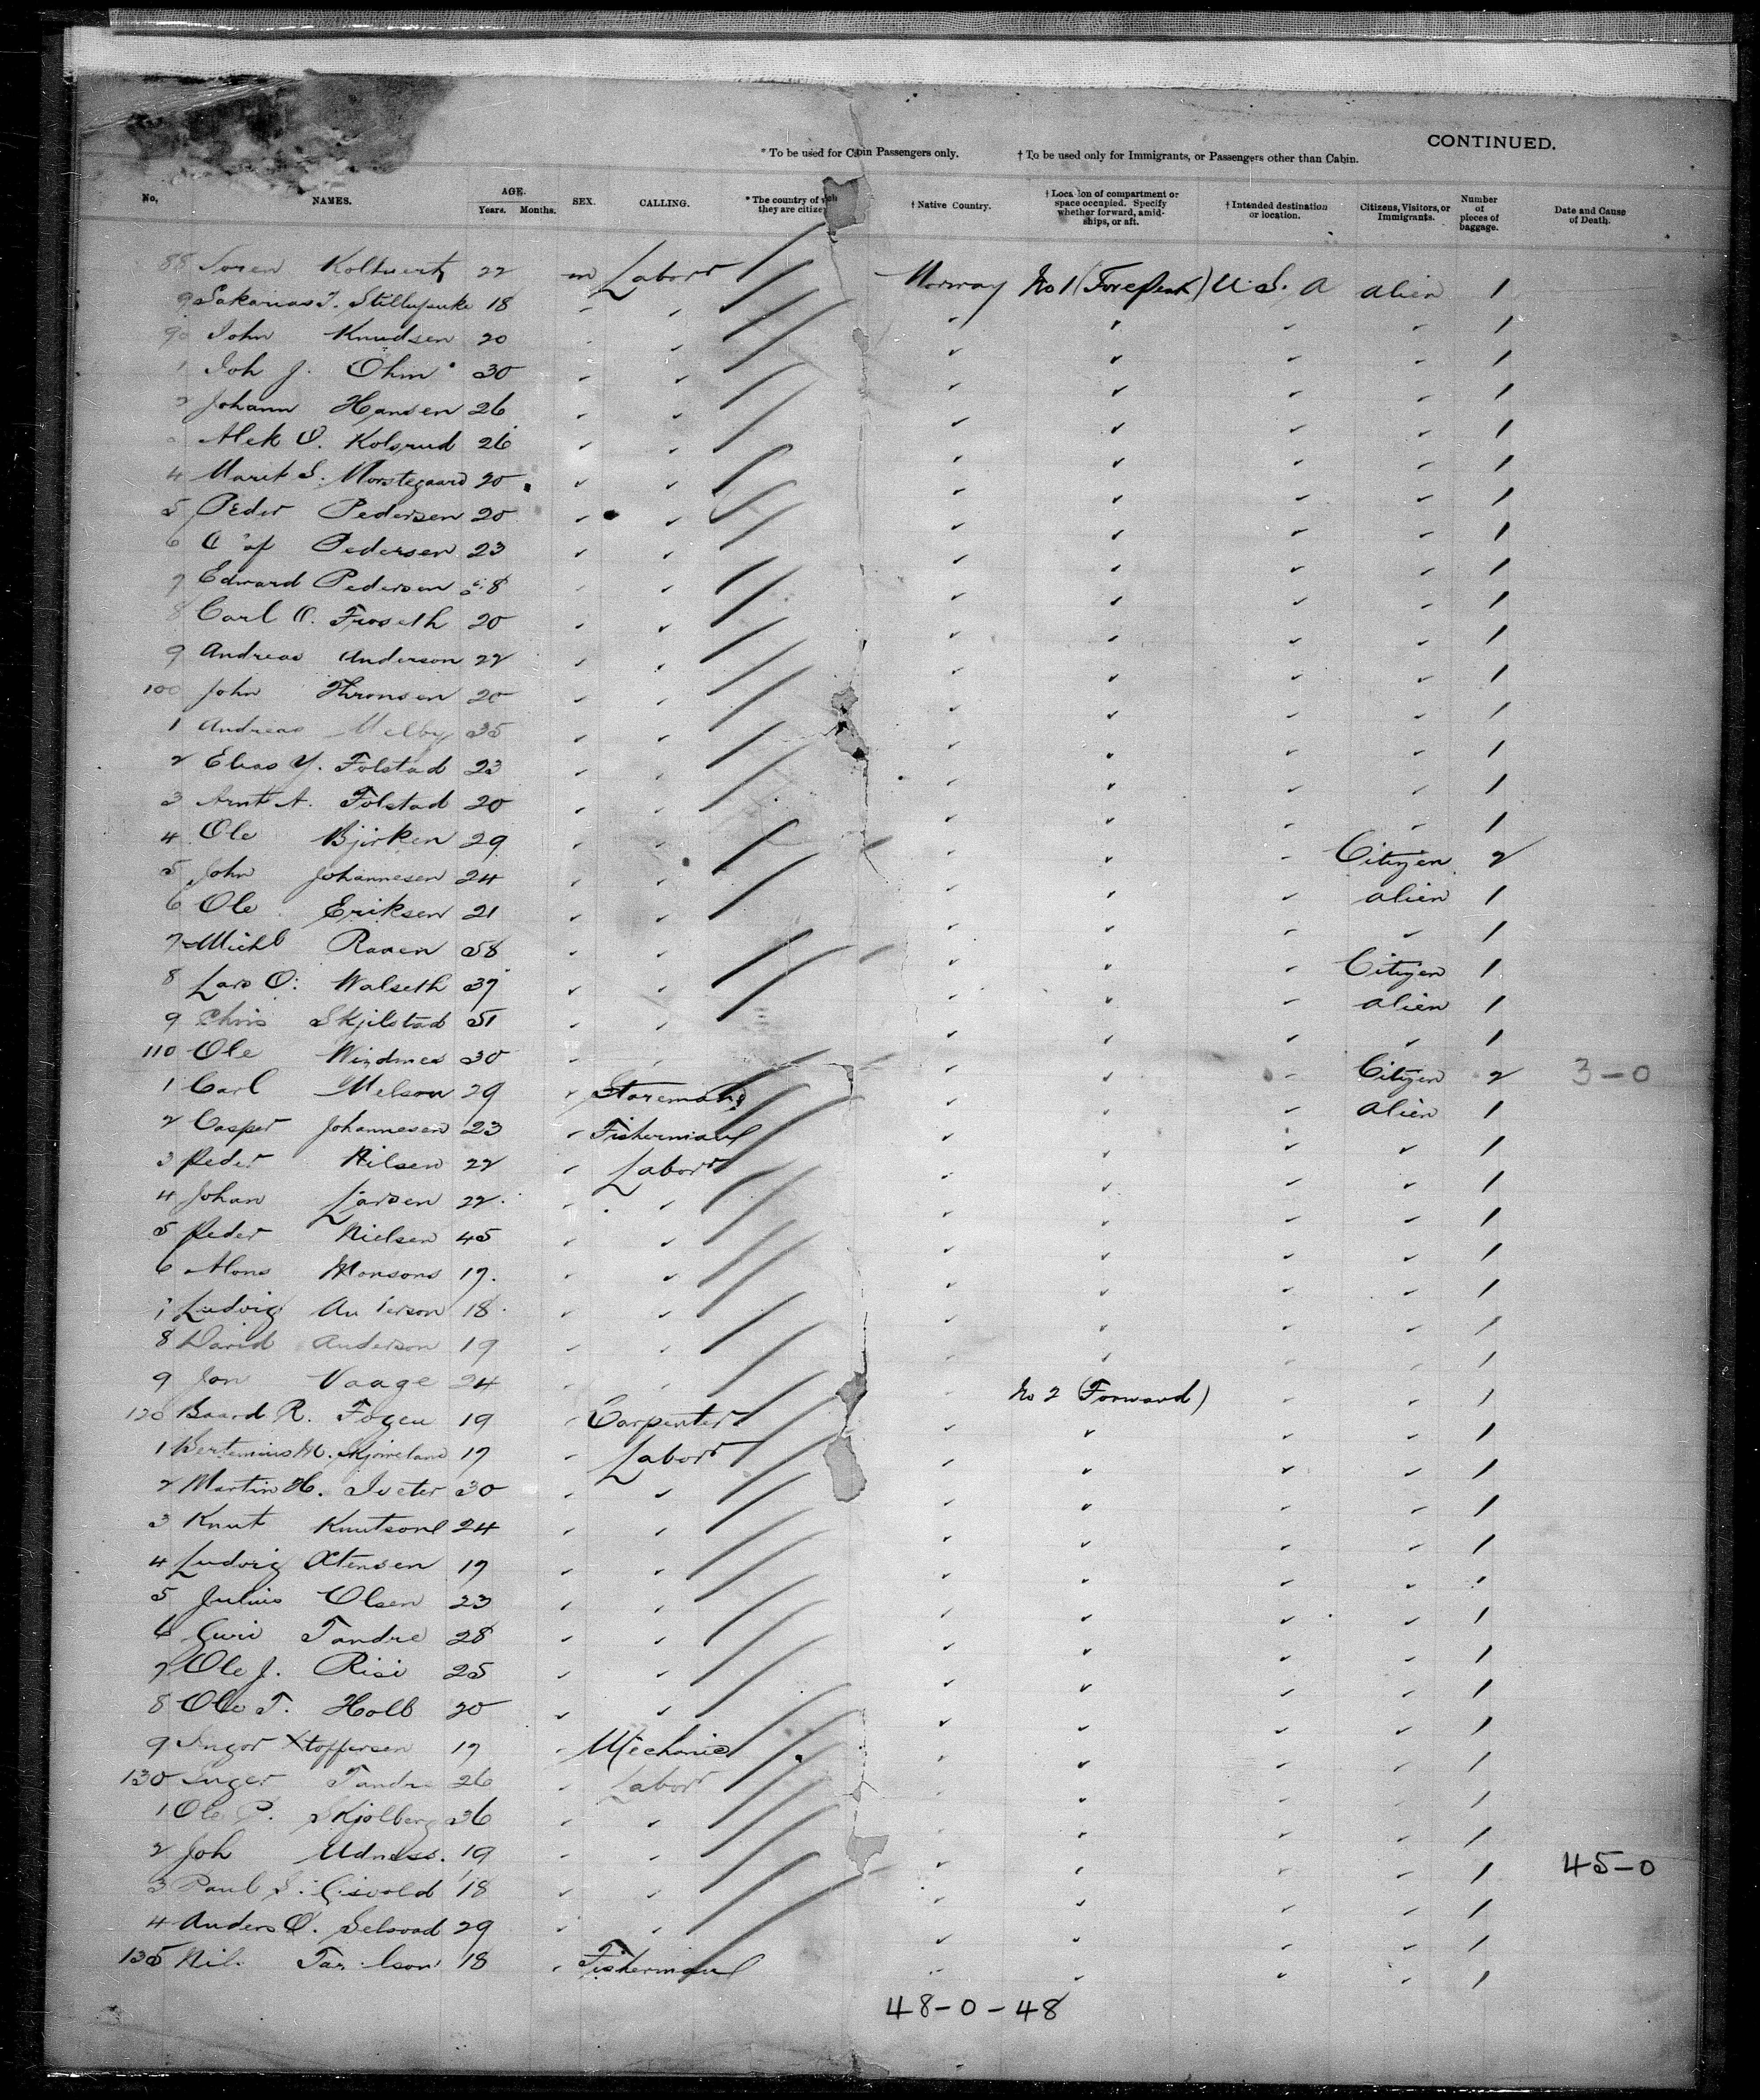 CONTINUED.
* To be used for Cabin Passengers only. † To be used only for Immigrants, or Passengers other than Cabin.
No. NAMES. AGE. Years. Months. SEX. CALLING. * The country of which they are citizens † Native Country. † Location of compartment or space occupied. Specify whether forward, amidships, or aft. † Intended destination or location. Citizens, Visitors, or Immigrants. Number of pieces of baggage. Date and Cause of Death.
88 Soren 22 m Labor Norway No 1 (Forepeak) U. S. A alien 1
9 Sakarias 18 " " " " " " 1
90 John Knudsen 20 " " " " " " 1
1 Joh J. Ohm 30 " " " " " " 1
2 Johann Hansen 26 " " " " " " 1
Alek O. Kolsrud 26 " " " " " " 1
4 Marit S. 20 " " " " " " 1
5 Peder Pedersen 20 " " " " " " 1
6 Pedersen 23 " " " " " " 1
7 Edward Pedersen " " " " " " 1
8 Carl O. Froseth 20 " " " " " " 1
9 Andreas Anderson 22 " " " " " " 1
100 John Thronsen 20 " " " " " " 1
1 Andreas Melby 35 " " " " " " 1
2 Elias Y. Folstad 23 " " " " " " 1
3 Arnt A. Folstad 20 " " " " " " 1
4 Ole Bjirken 29 " " " " " Citizen 2
5 John Johannesen 24 " " " " " alien 1
6 Ole Eriksen 21 " " " " " " 1
7 Michl Raaen 58 " " " " " Citizen 1
8 Lars O. Walseth 37 " " " " " alien 1
9 Chris Skjilstad 51 " " " " " " 1
110 Ole 30 " " " " " Citizen 2 3-0
1 Carl Melson 29 " " " " alien 1
2 Casper Johannesen 23 " Fisherman " " " " 1
3 Peder Nilsen 22 " Labor " " " " 1
4 Johan Larsen 22 " " " " " " 1
5 Peder Nielsen 45 " " " " " " 1
6 Mons Monsons 17 " " " " " " 1
Ludvig Anderson 18 " " " " " " 1
8 David Anderson 19 " " " " " " 1
9 Jon Vaage 24 " " " No 2 (Forward) " " 1
120 Baard R. 19 " Carpenter " " " " 1
1 17 " Labor " " " " 1
2 Martin H. 30 " " " " " " 1
3 Knut Knutson 24 " " " " " " 1
4 Ludvig Xtensen 17 " " " " " " 1
5 Julius Olsen 23 " " " " " " 1
6 Guri Tandre 28 " " " " " " 1
7 Ole J. Risi 25 " " " " " " 1
8 Ole T. Holb 20 " " " " " " 1
9 Xtoffersen 17 " Mechanic " " " " 1
130 Inger Tandre 26 " Labor " " " " 1
1 Ole P. Skjolberg 36 " " " " " " 1
2 Joh Udness 19 " " " " " " 1 45-0
3 Paul S. Gisvold 18 " " " " " " 1
4 Anders O. 29 " " " " " " 1
135 18 " Fisherman " " " " 1
48-0-48